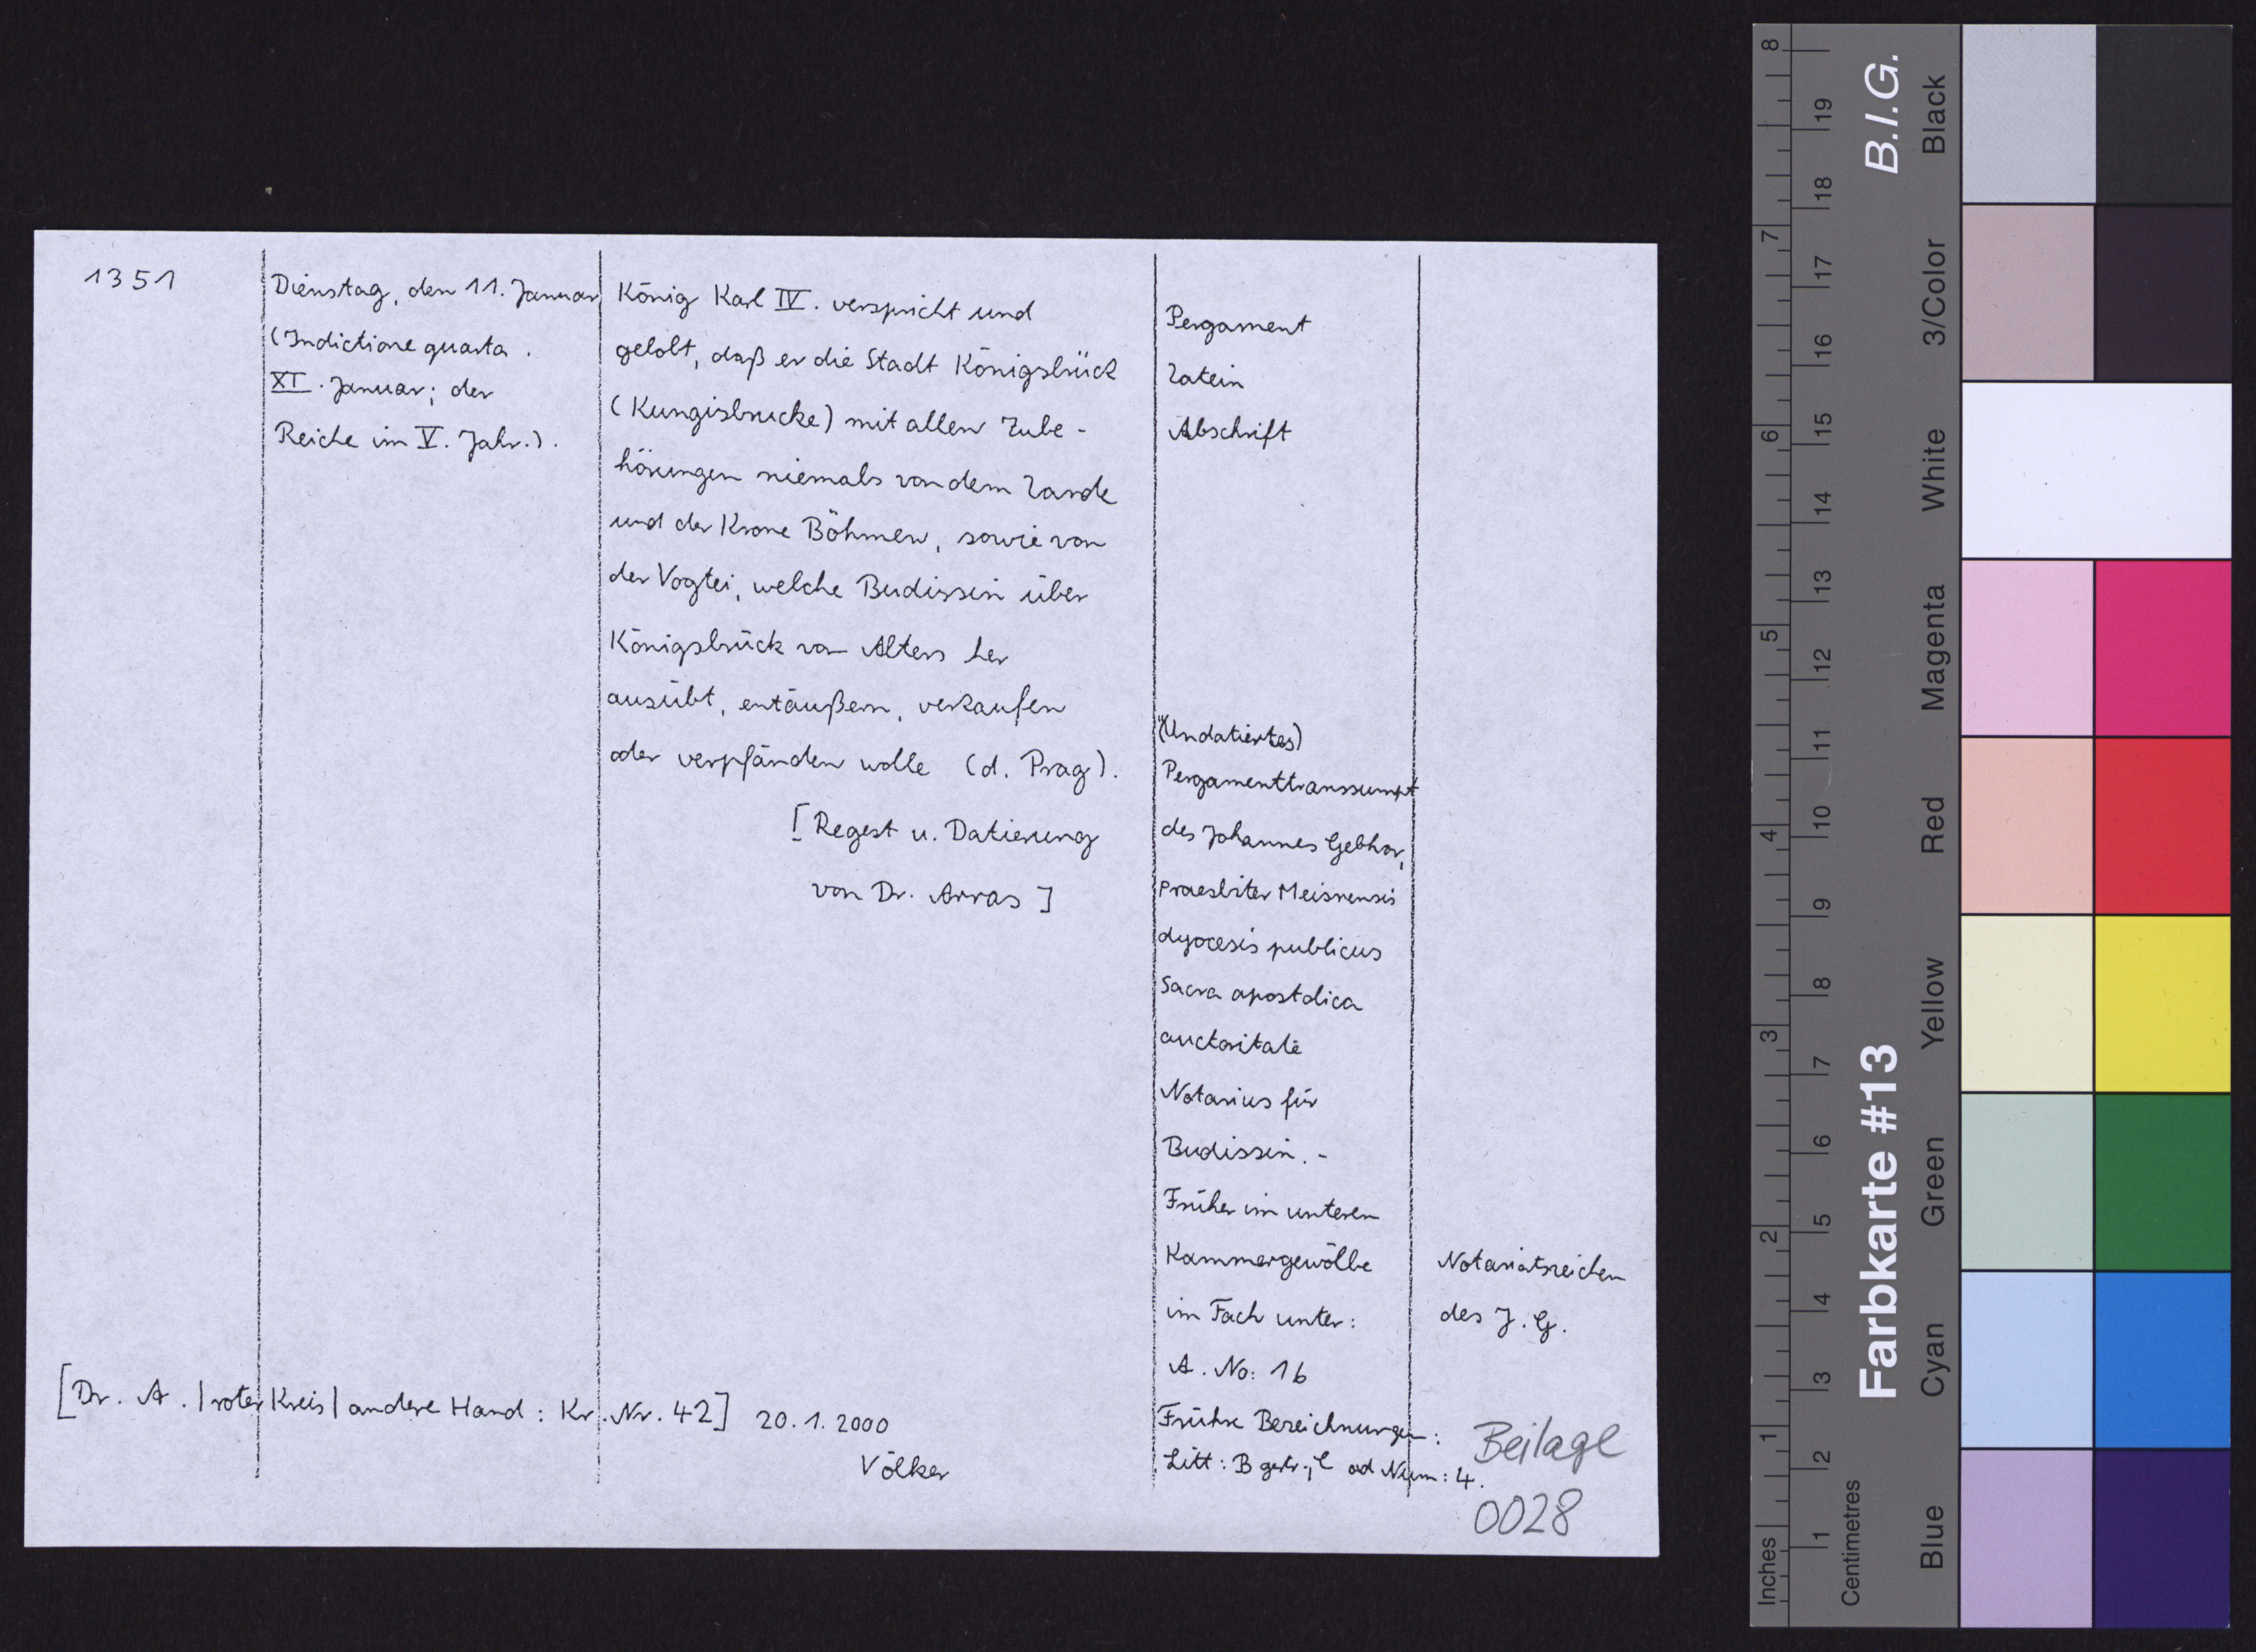 1351
Dienstag, den 11. Januar
(Indictione quarta.
XI. Januar; der
Reiche im V. Jahr.).
König Karl IV. verspricht und
gelobt, daß er die Stadt Königsbrück
(Kungisbrucke) mit allen Zube-
hörungen niemals von dem Lande
und der Krone Böhmen, sowie von
der Vogtei, welche Budissin über
Königsbrück von Alters her
ausübt, entäußern, verkaufen
oder verpfänden wolle (d. Prag).
[Regest u. Datierung
von Dr. Arras]
Pergament
Latein
Abschrift
(Undatiertes)
Pergamenttranssumpt
des Johannes Gebhar,
Praesbiter Meisnensis
dyocesis publicus
Sacra apostolica
auctoritate
Notarius für
Budissin. -
Früher im unteren
Kammergewölbe
im Fach unter:
A. No: 16
Frühre Bezeichnungen:
Litt: B gestr.; C ad Num: 4.
Notariatszeichen
des J. G.
[Dr. A. | roter Kreis | andere Hand: Kr. Nr. 42] 20.1.2000
Völker
Beilage
0028
B.I.G.
Farbkarte #13
Inches 1 2 3 4 5 6 7 8
Centimetres 1 2 3 4 5 6 7 8 9 10 11 12 13 14 15 16 17 18 19
Blue Cyan Green Yellow Red Magenta White 3/Color Black